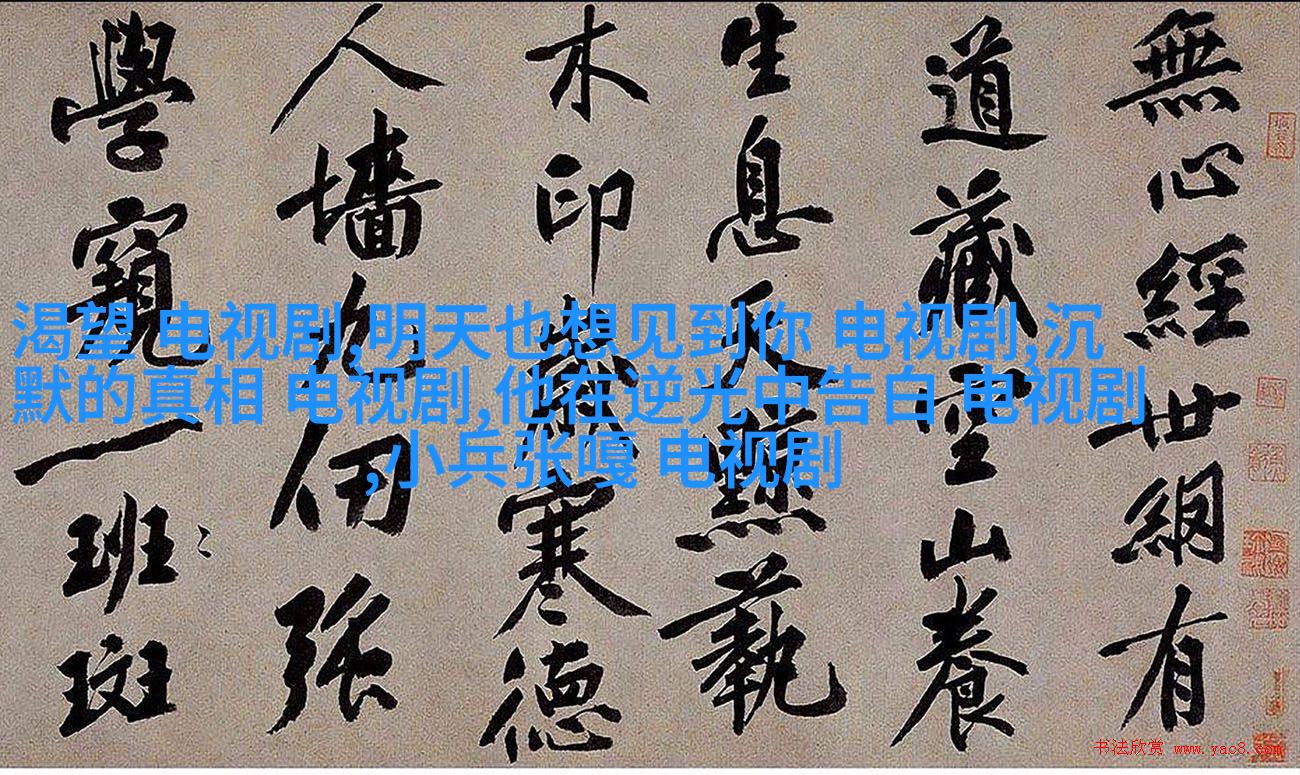 無心經世網有
道藏山養
生息天蓺
木印歲寒德
人墻九仞強
學窺一班〻斑
渴望 电视剧,明天也想见到你 电视剧,沉
默的真相 电视剧,他在逆光中告白 电视剧
,小兵张嘎 电视剧
书法欣赏 www.yac8.com